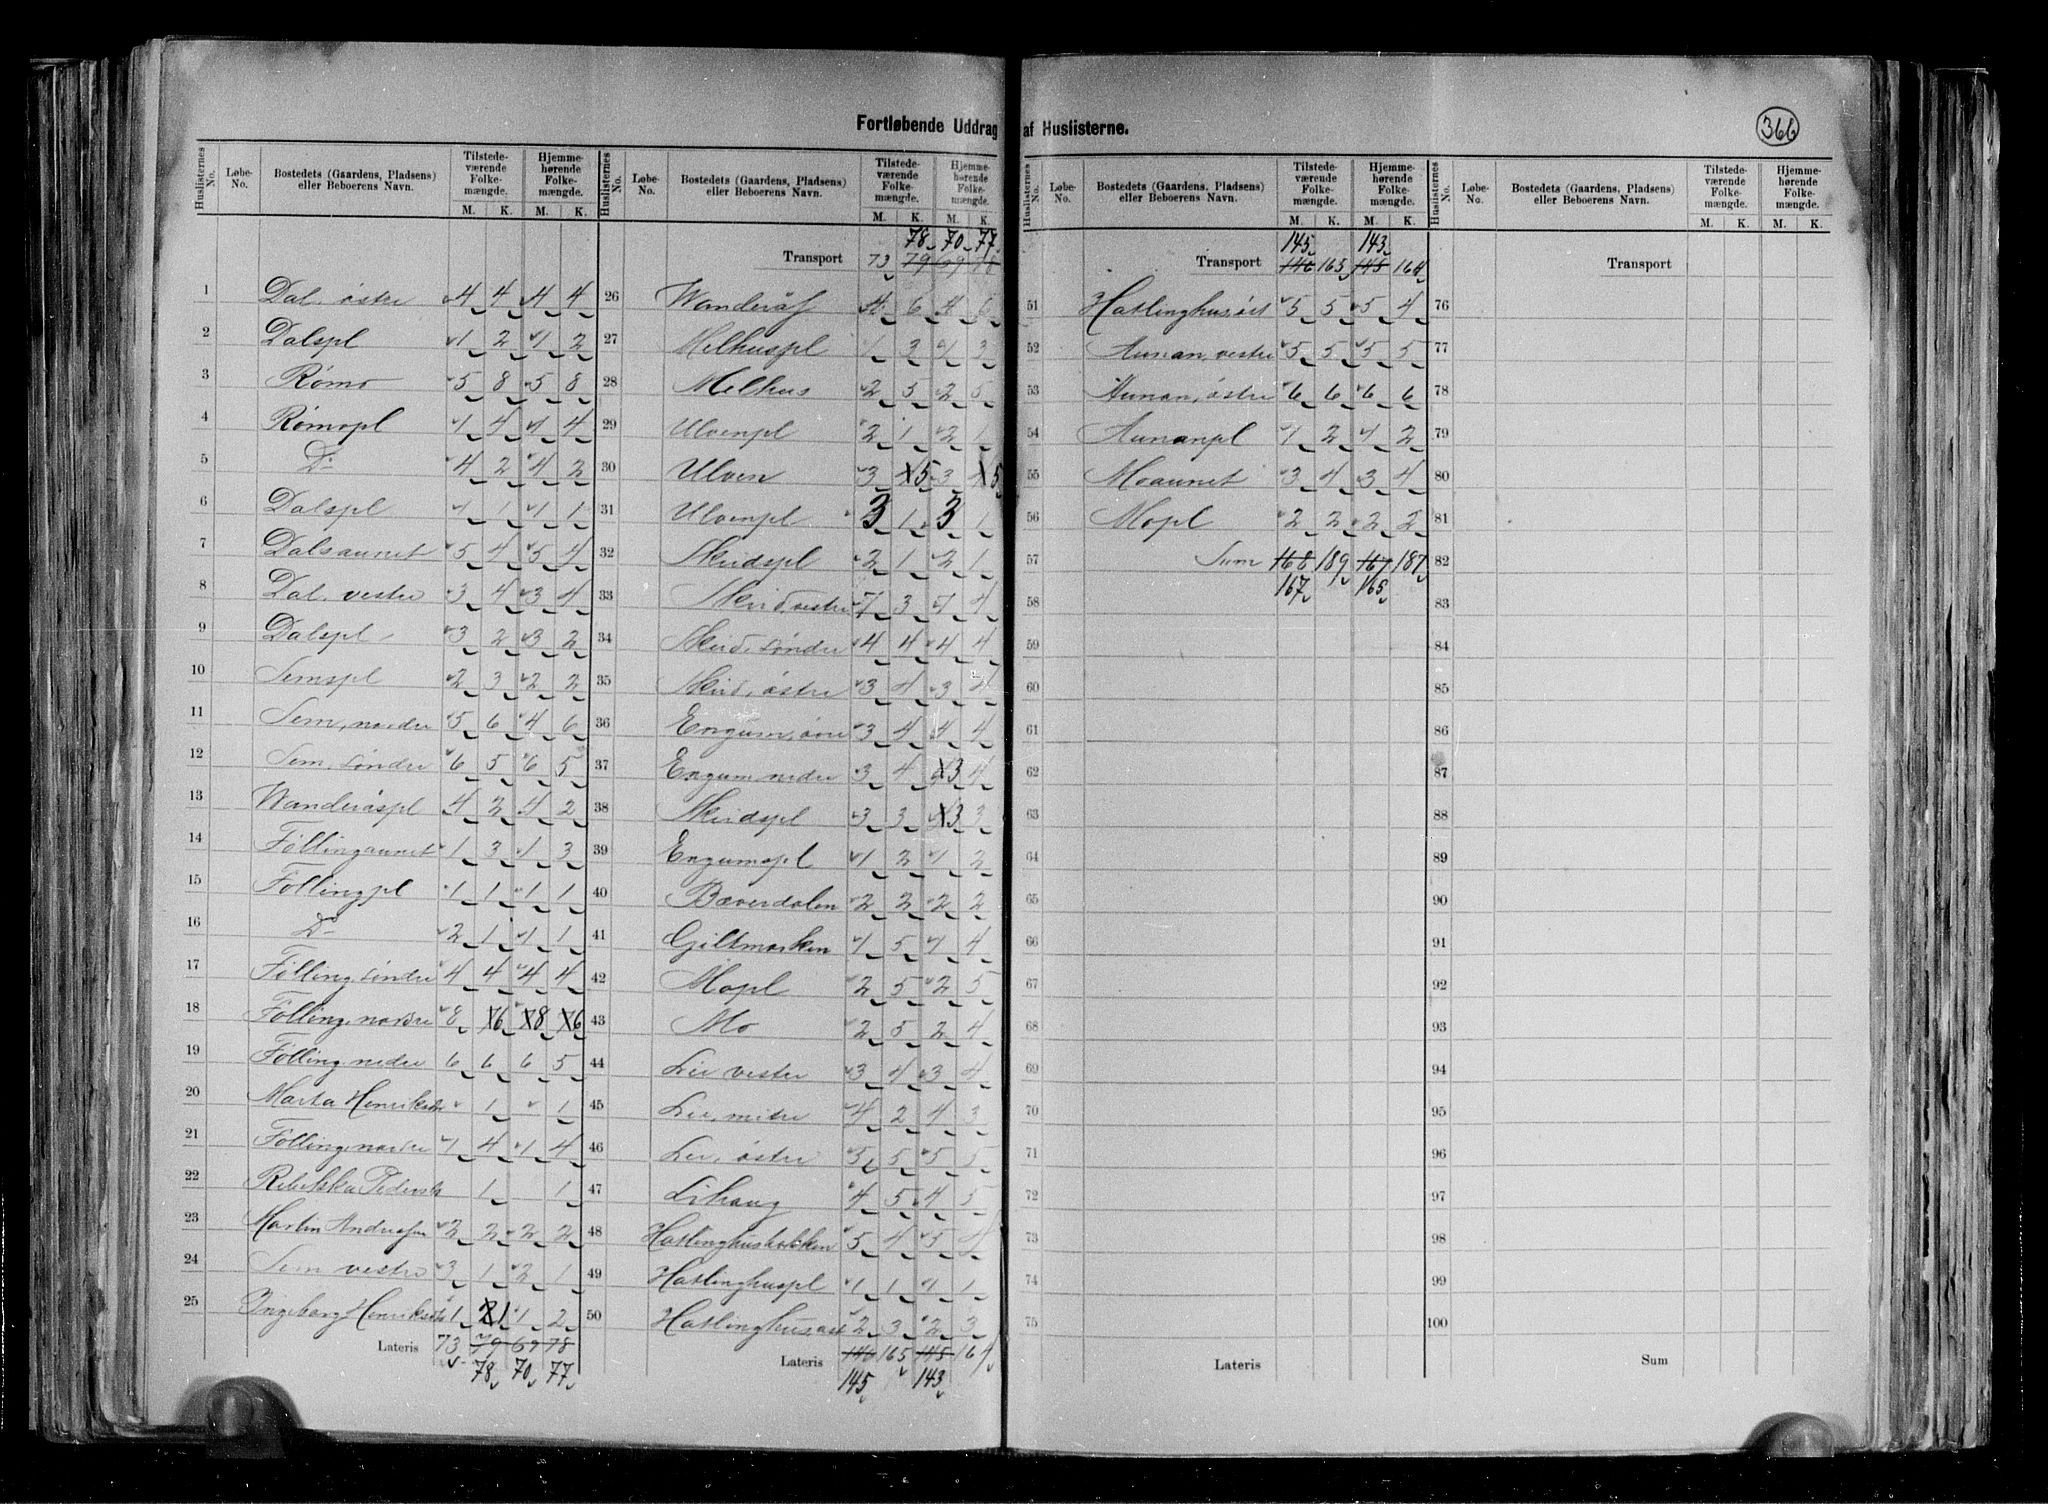 Fortløbende Uddrag af Huslisterne.
366
Huslisternes No. Løbe-No. Bostedets (Gaardens, Pladsens) eller Beboerens Navn. Tilstedeværende Folkemængde. M. K. Hjemmehørende Folkemængde. M. K.
1 Dal østre 4 4 4 4
2 Dalspl 1 2 1 2
3 Rømo 5 8 5 8
4 Rømopl 1 4 1 4
5 Do 4 2 4 2
6 Dalspl 1 1 1 1
7 Dalsaunet 5 4 5 4
8 Dal, vestre 3 4 3 4
9 Dalspl 3 2 3 2
10 Semspl 2 3 2 2
11 Sem, nordre 5 6 4 6
12 Sem, søndre 6 5 6 5
13 Wanderåspl 4 2 4 2
14 Føllingaunet 1 3 1 3
15 Føllingpl 1 1 1 1
16 Do 2 1 1 1
17 Følling, søndre 4 4 4 4
18 Følling, nordre 8 6 8 6
19 Følling nedre 6 6 6 5
20 Marta Henriksdr 1 1
21 Følling, nordre 1 4 1 4
22 Rebekka Pedersdr 1 1
23 Martin Andreasen 2 2 2 2
24 Sem vestre 3 1 2 1
25 Ingeborg Henriksdr 1 1 1 2
Lateris 73 79 69 78
78 70 77
Huslisternes No. Løbe-No. Bostedets (Gaardens, Pladsens) eller Beboerens Navn. Tilstedeværende Folkemængde. M. K. Hjemmehørende Folkemængde. M. K.
78 70 77
Transport 73 79 69 78
26 Wanderås 4 6 4 6
27 Melhuspl 1 3 1 3
28 Melhus 2 5 2 5
29 Ulvenpl 2 1 2 1
30 Ulven 3 5 3 5
31 Ulvenpl 3 1 3 1
32 Skridspl 2 1 2 1
33 Skrid, vestre 7 3 7 4
34 Skrid, søndre 4 4 4 4
35 Skrid, østre 3 4 3 4
36 Engum, øvre 3 4 4 4
37 Engum nedre 3 4 3 4
38 Skridspl 3 3 3 3
39 Engumspl 1 2 1 2
40 Bæverdalen 2 2 2 2
41 Giltmarken 1 5 1 4
42 Mopl 2 5 2 5
43 Mo 2 5 2 4
44 Lei vestre 3 4 3 4
45 Lei, midre 4 2 4 3
46 Lei, østre 5 5 5 5
47 Lihaug 4 5 4 5
48 Hatlinghusbakken 5 4 5 4
49 Hatlinghuspl 1 1 1 1
50 Hatlinghus 2 3 2 3
Lateris 146 165 145 164
145 143
Huslisternes No. Løbe-No. Bostedets (Gaardens, Pladsens) eller Beboerens Navn. Tilstedeværende Folkemængde. M. K. Hjemmehørende Folkemængde. M. K.
145 143
Transport 146 165 145 164
51 Hatlinghus øst 5 5 5 4
52 Aunan, vestre 5 5 5 5
53 Aunan, østre 6 6 6 6
54 Aunanpl 1 2 1 2
55 Moaunet 3 4 3 4
56 Mopl 2 2 2 2
57 Sum 168 189 167 187
58 167 165
59
60
61
62
63
64
65
66
67
68
69
70
71
72
73
74
75
Lateris
Huslisternes No. Løbe-No. Bostedets (Gaardens, Pladsens) eller Beboerens Navn. Tilstedeværende Folkemængde. M. K. Hjemmehørende Folkemængde. M. K.
Transport
76
77
78
79
80
81
82
83
84
85
86
87
88
89
90
91
92
93
94
95
96
97
98
99
100
Sum